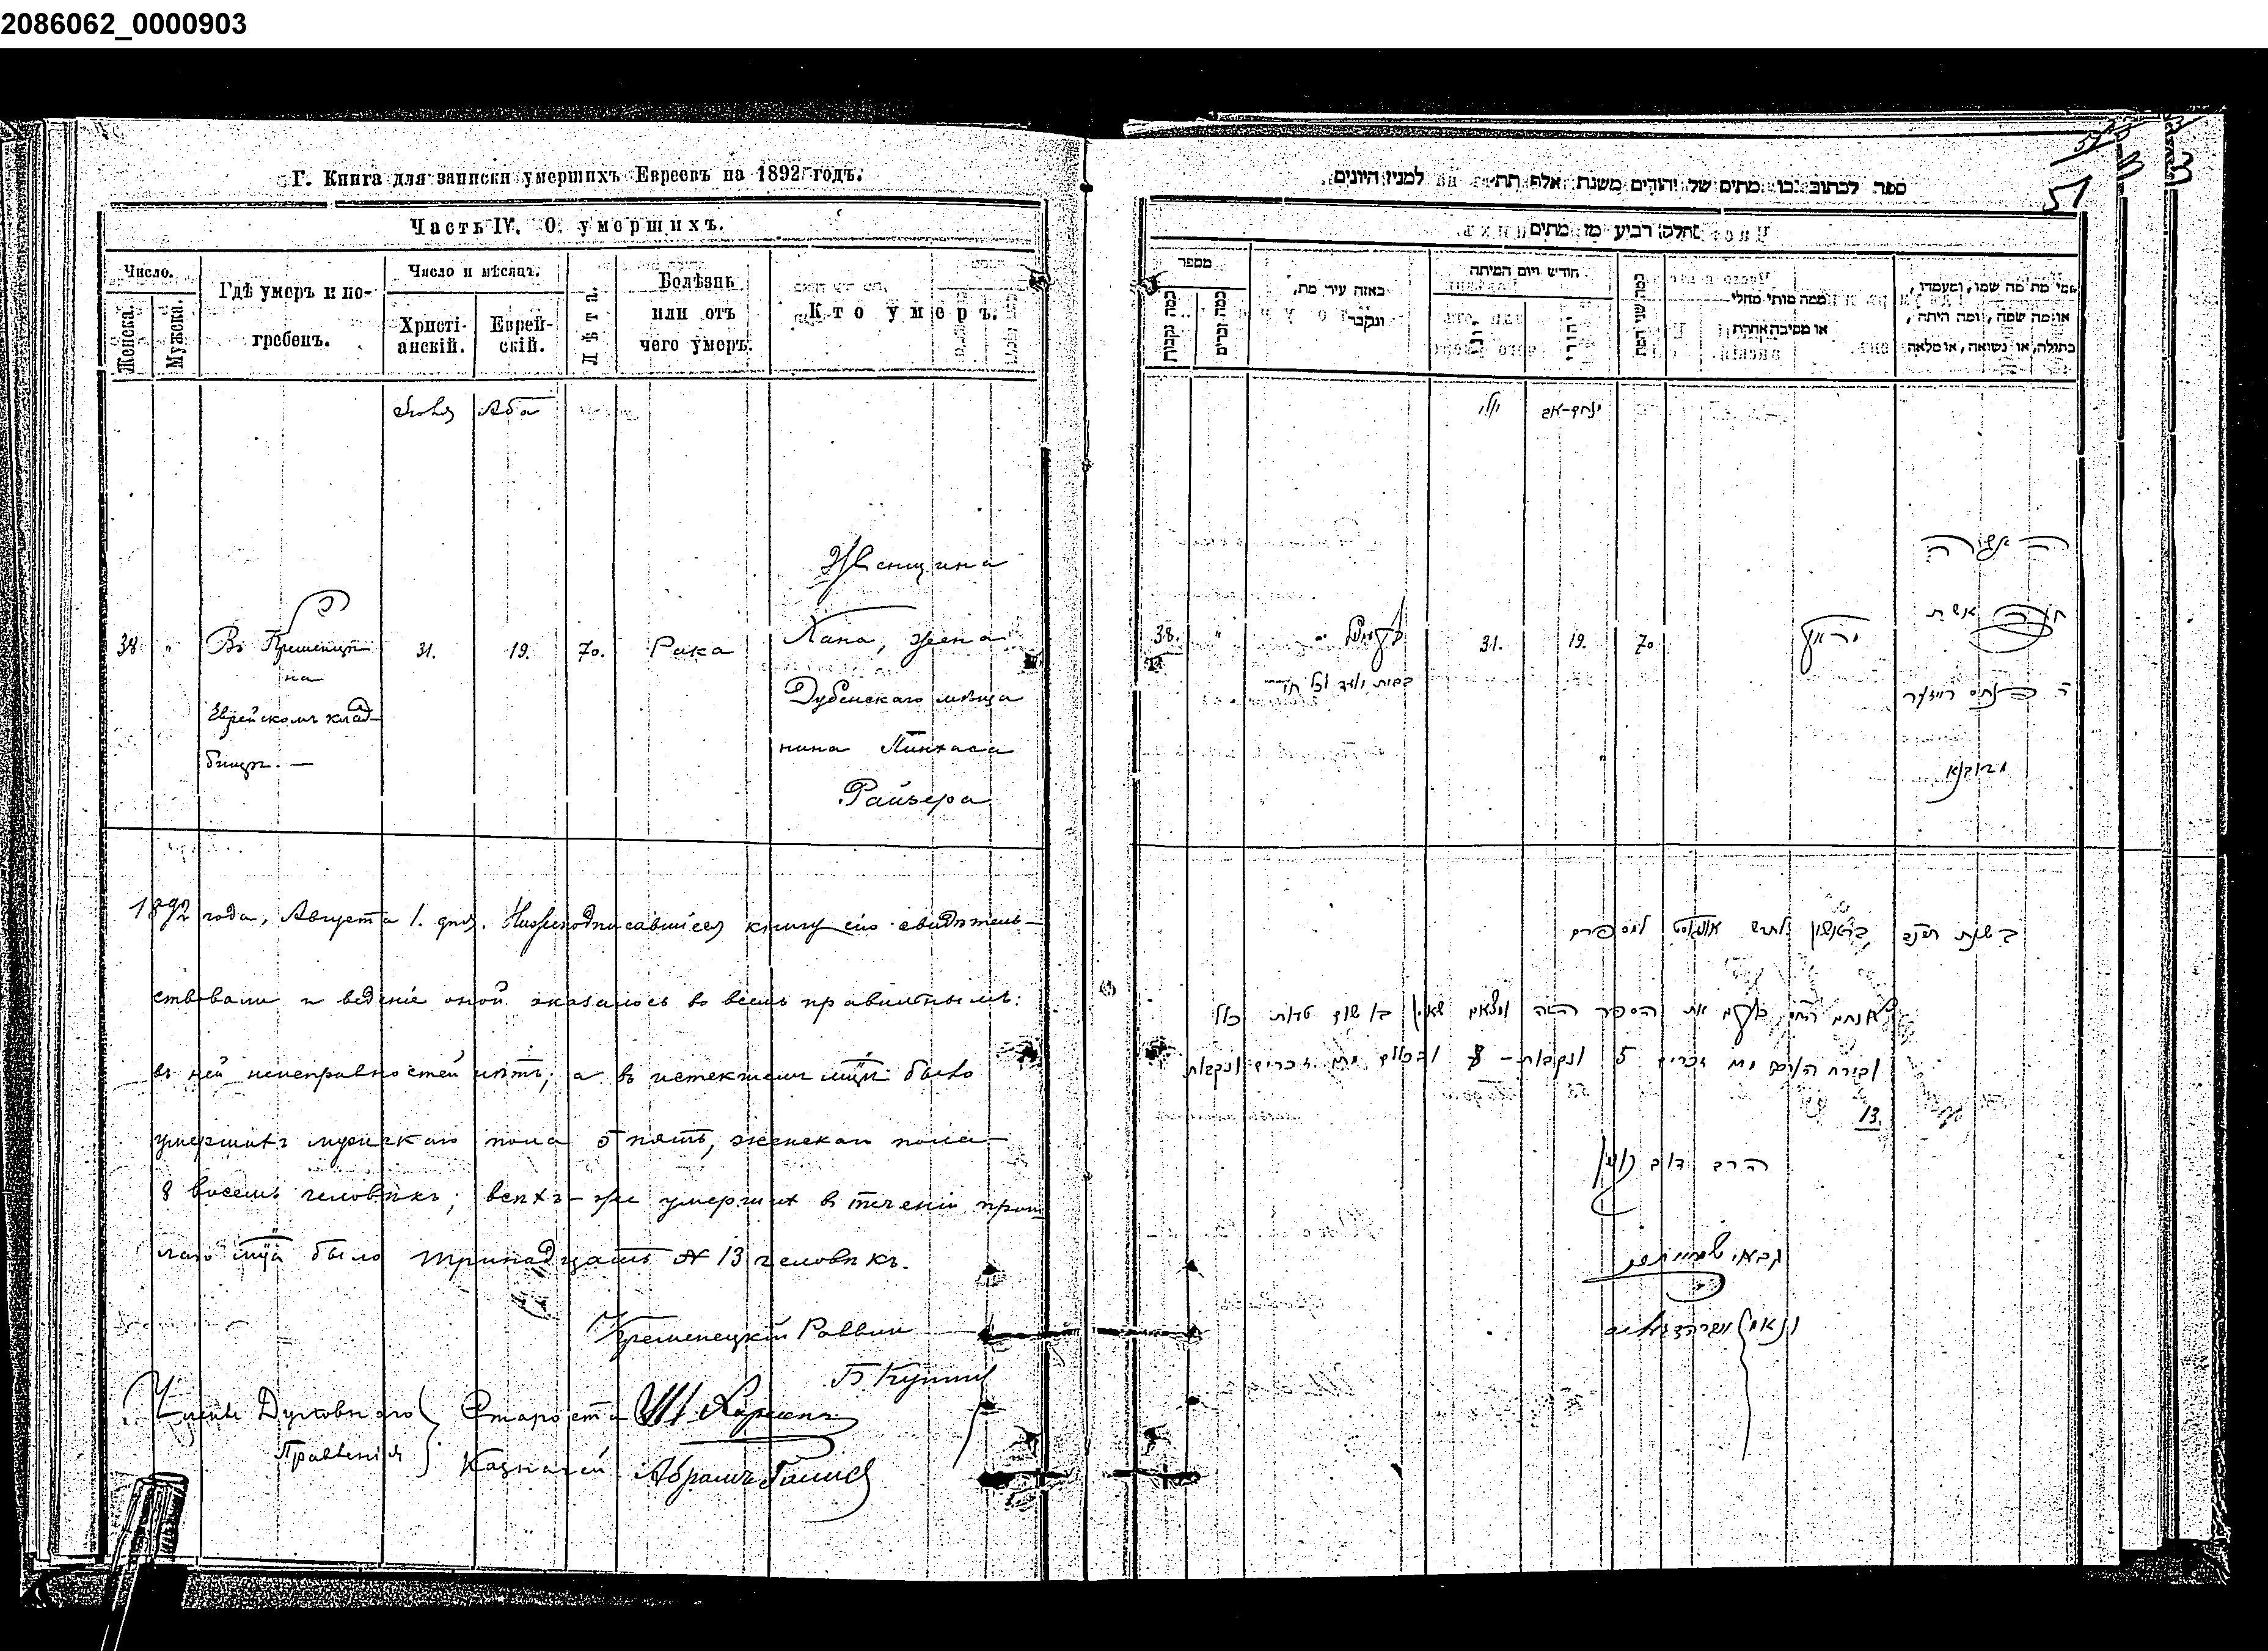 2086062_0000903
Г. Книга для записки умершихъ Евреевъ на 1892 годъ.
Часть IV. О умершихъ.
Число.
Женска.
Мужска.
Гдѣ умеръ и по-
гребенъ.
Число и мѣсяцъ.
Христі-
анскій.
Еврей-
скій.
Лѣта.
Болѣзнь
или отъ
чего умеръ.
Кто умеръ.
Іюля
Аба
38
Въ Кременцѣ
на
Еврейскомъ клад-
бищѣ. —
31.
19.
70.
Рака
Женщина
Хана, жена
Дубенскаго мѣща
нина Пинхаса
Райзера
1892 года, Августа 1. дня. Нижеподписавшіеся книгу сію свидѣтель-
ствовали и веденіе оной оказалось во всемъ правильнымъ:
въ ней неисправностей нѣтъ; а въ истекшемъ мцѣ было
умершихъ мужскаго пола 5 пять, женскаго пола
8 восемь человѣкъ; всѣхъ-же умершихъ в теченіи прош
лаго мца было тринадцать 13 человѣкъ.
Кременецкій Раввин
Б. Кунин
Члены Духовного
Правленія
Староста
Казначей Абрамъ
ספר לכתוב בו מתים של יהודים משנת אלף תת למנין היונים.
חלק רביע מן מתים
מספר
כמה נקבות
כמה זכרים
באזה עיר מת,
ונקבר
חודש ויום המיתה
יוני
יהודי
כמה שני המת
ממה מותי מחלי
או מסיבה אחרת
מי מת מה שמו, ומעמדו,
או מה שמה, ומה היתה,
בתולה, או נשואה, או אלמנה
51
יולי
38.
31.
19.
70
האשה
חנה אשת
ר פנחס רייזער
מדובנא
בשנת תרנב בראשון לחדש אוגוסט למספרם
אנחנו הח"מ בקרנו את הספר הזה ומצאנו שאין בו שום טעות כלל
ובירח העבר מתו זכרים 5 ונקבות - 8 ובכלל מתו זכרים ונקבות
13.
הרב דוב קונין
גבאי
ונאמן